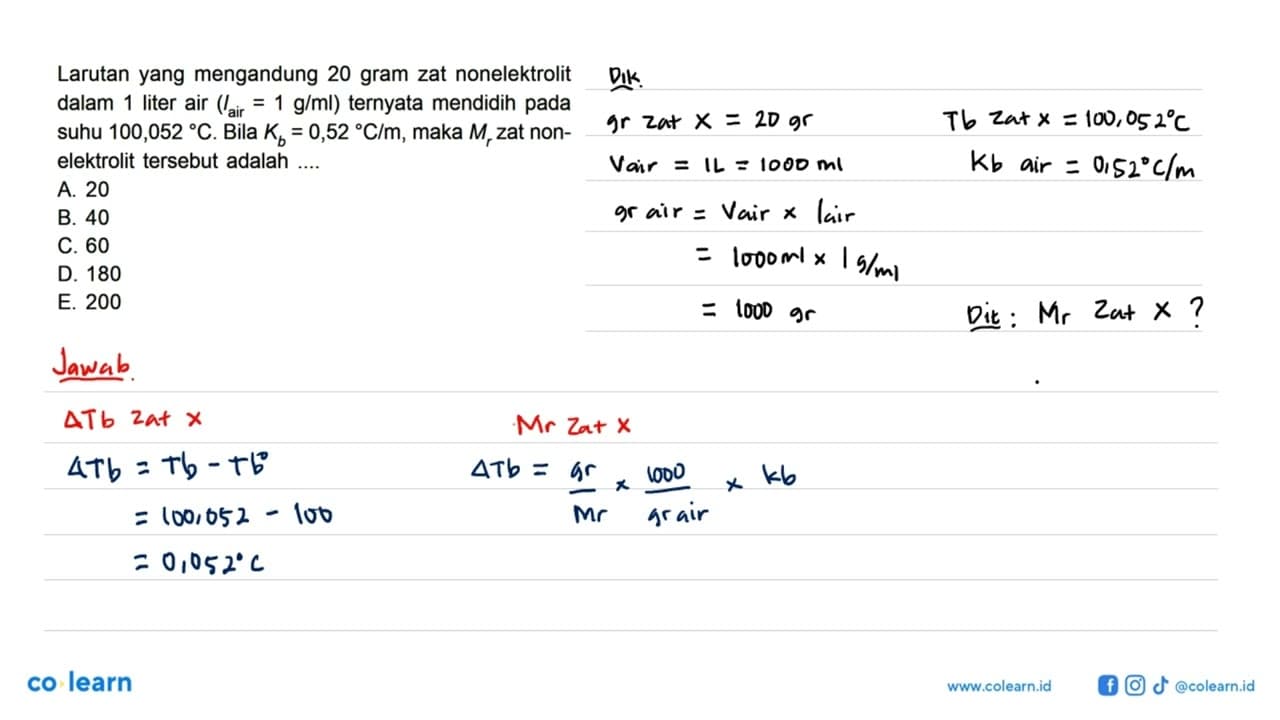 Larutan yang mengandung 20 gram zat nonelektrolit
dalam 1 liter air (l air = 1 g/ml) ternyata mendidih pada
suhu 100,052 °C. Bila K_b = 0,52 °C/m, maka M_r zat non-
elektrolit tersebut adalah ....
A. 20
B. 40
C. 60
D. 180
E. 200
Dik.
gr zat x = 20 gr
Vair = 1L = 1000 ml
gr air = Vair × lair
= 1000 ml × 1 g/ml
= 1000 gr
Tb zat x = 100,052°C
Kb air = 0,52°C/m
Dit : Mr zat x ?
Jawab.
ΔTb zat x
ΔTb = Tb - Tb°
= 100,052 - 100
= 0,052°C
Mr zat x
ΔTb = gr/Mr × 1000/gr air × kb
co learn
www.colearn.id
@colearn.id